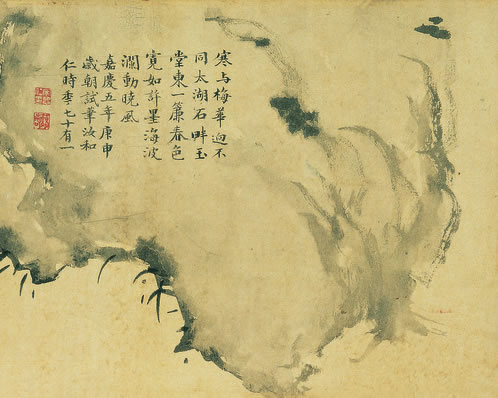 寒與梅華迥不
同太湖石畔玉
堂東一簾春色
寛如許墨海波
瀾動曉風
嘉慶五年庚申
歲朝試筆汝和
仁時季七十有一